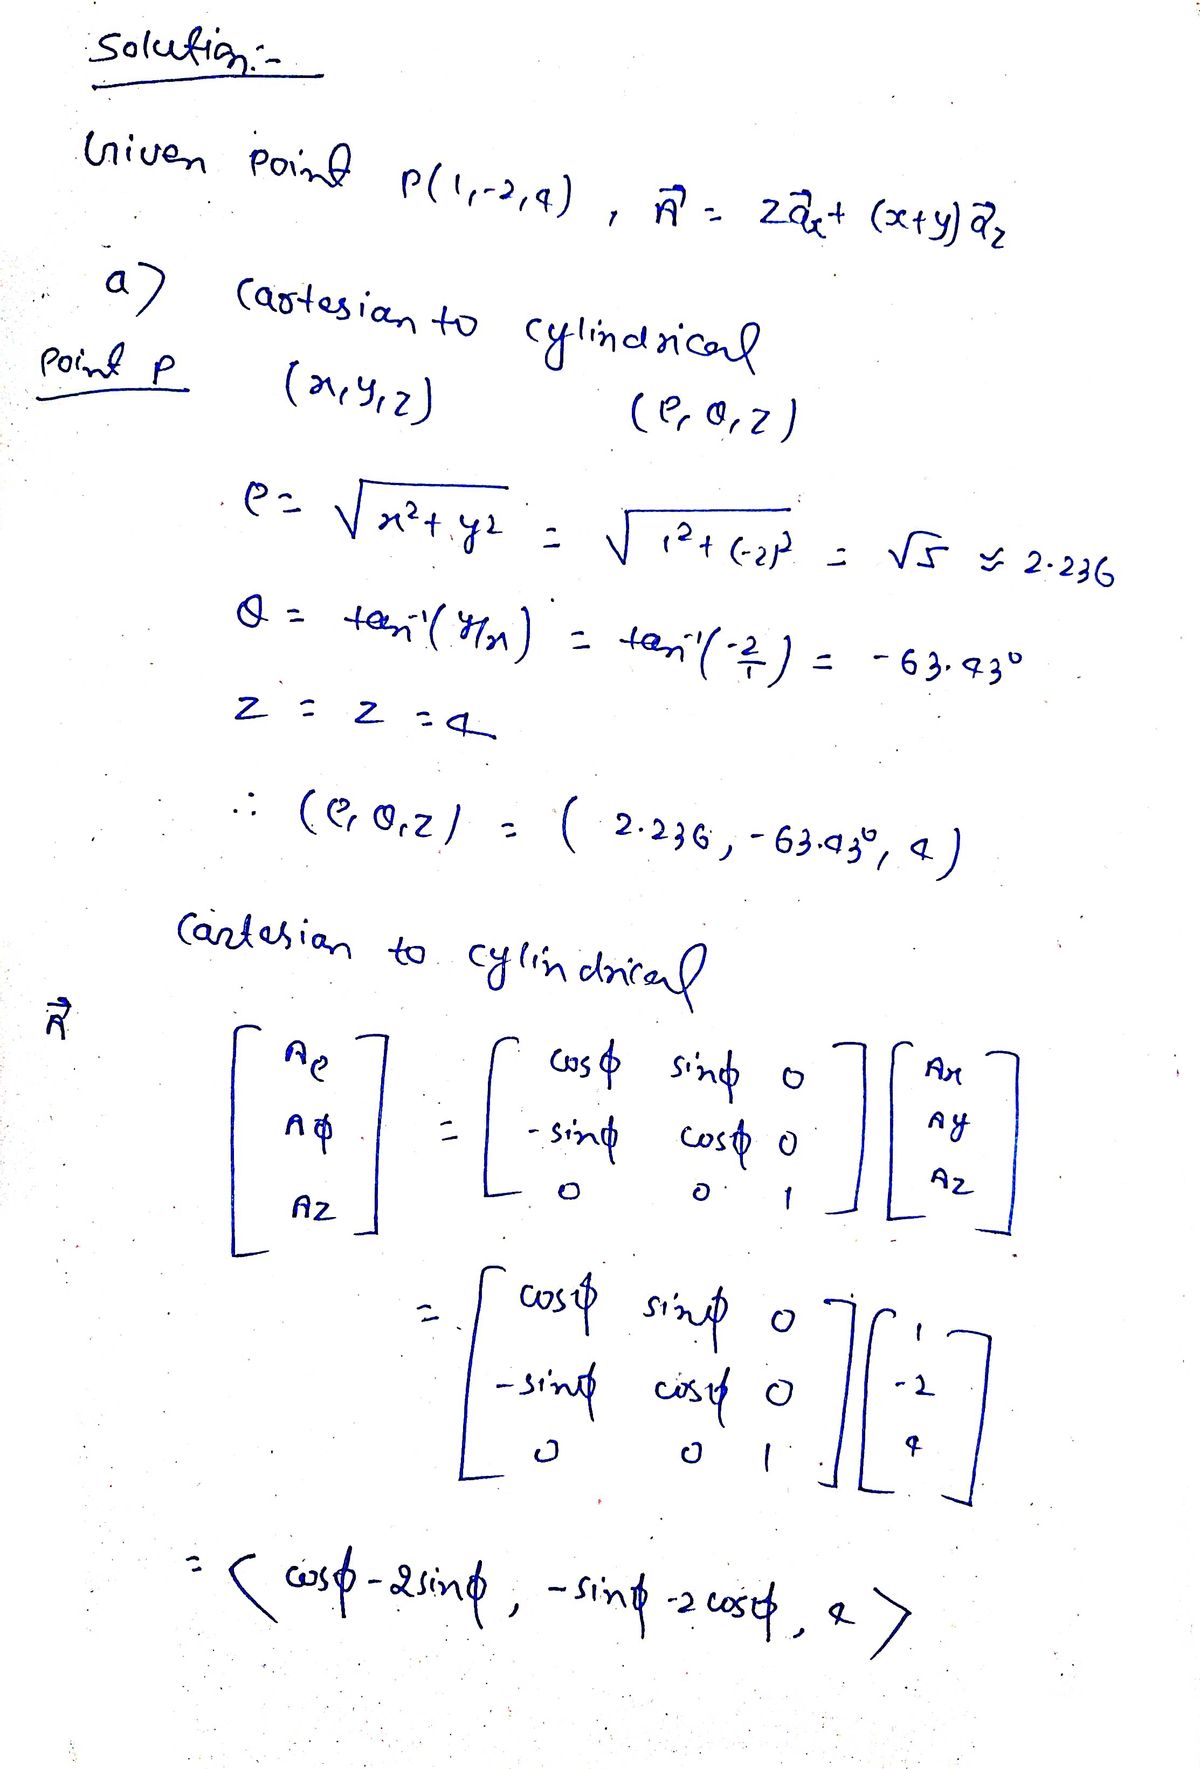 Solution:-
Given point P(1,-2,4), A⃗ = z a⃗x + (x+y) a⃗z
a) Cartesian to cylindrical
Point P (x,y,z) (ρ, θ, z)
ρ = √(x²+y²) = √(1²+(-2)²) = √5 ≈ 2.236
θ = tan⁻¹(y/x) = tan⁻¹(-2/1) = -63.43°
z = z = 4
∴ (ρ, θ, z) = ( 2.236, -63.43°, 4)
Cartesian to cylindrical
A⃗
[Aρ Aφ Az] = [cosφ sinφ 0 -sinφ cosφ 0 0 0 1] [Ax Ay Az]
= [cosφ sinφ 0 -sinφ cosφ 0 0 0 1] [1 -2 4]
= ⟨ cosφ-2sinφ, -sinφ-2cosφ, 4 ⟩